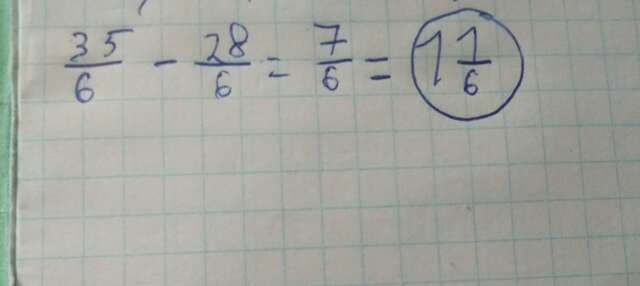 35/6 - 28/6 = 7/6 = 1 1/6